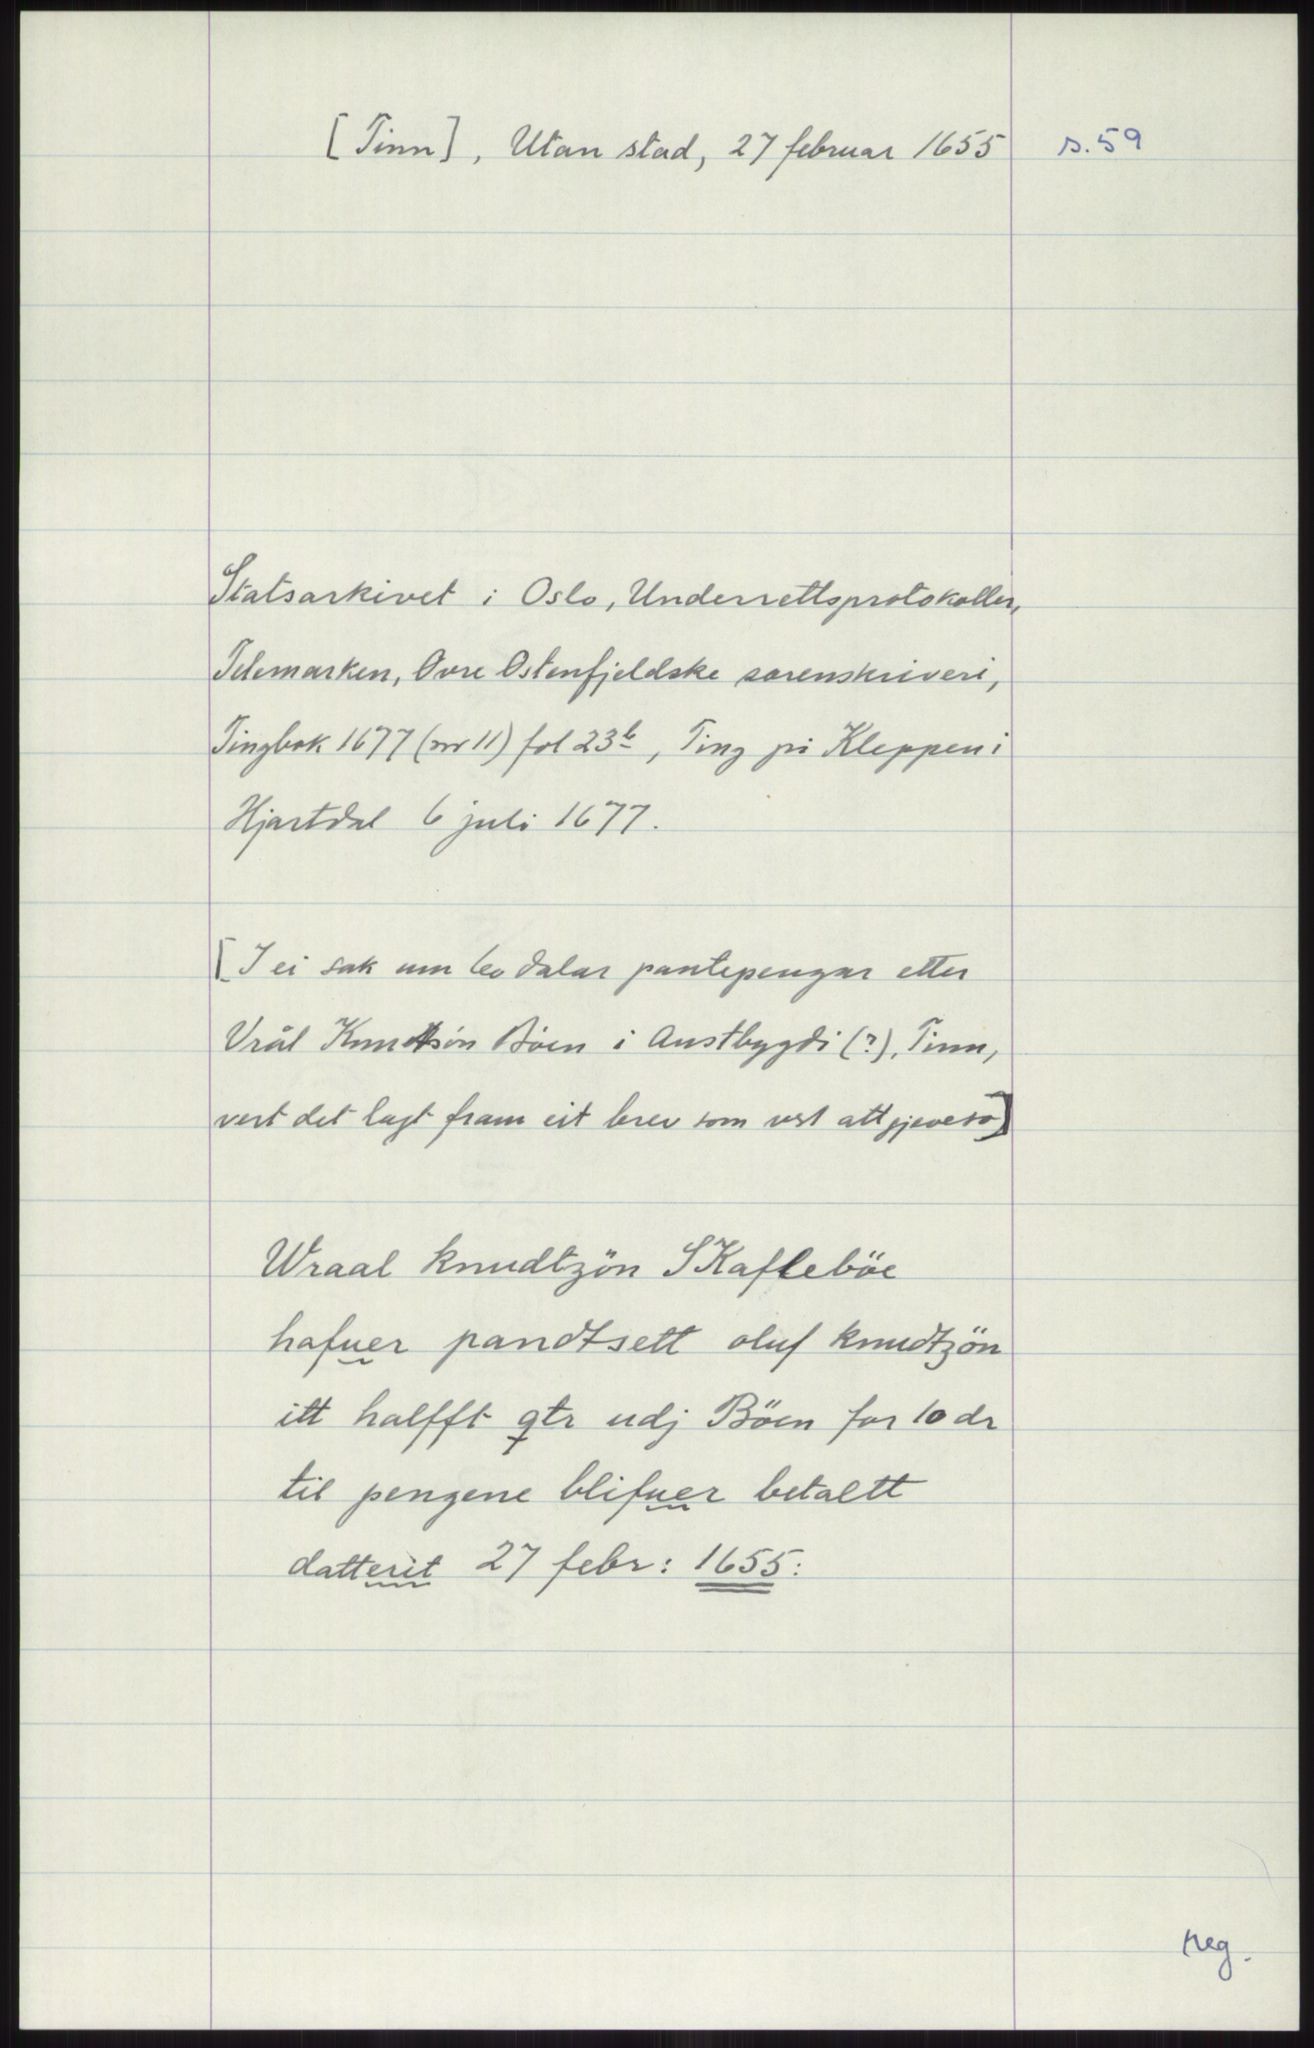 [Tinn], Utan stad, 27 februar 1655 s. 59
Statsarkivet i Oslo, Underrettsprotokoller,
Telemarken, Øvre Østenfjeldske sorenskriveri,
Tingbok 1677 (nr 11) fol 23b, Ting på Kleppen i
Hjartdal 6 juli 1677.
[I ei sak um 60 dalar pantepengar etter
Vrål Knutsön Böen i Austbygdi (?), Tinn,
vert det lagt fram eit brev som vert attgjeve so]
Wraal knudtzön SKafleböe
hafuer pandtsett oluf knudtzön
itt halfft qtr udj Böen for 10 dr
til pengene blifuer betaltt
datterit 27 febr: 1655:
reg.